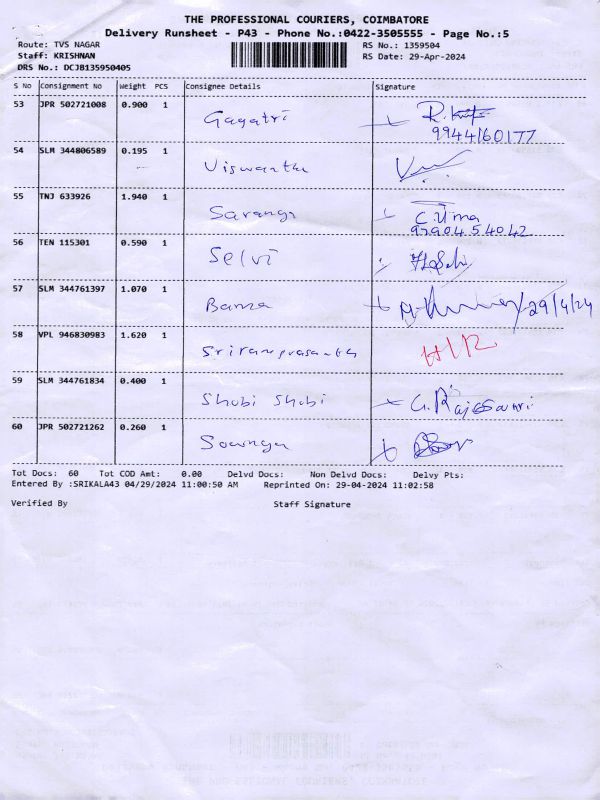 THE PROFESSIONAL COURIERS, COIMBATORE
Delivery Runsheet - P43 - Phone No.:0422-3505555 - Page No.:5
Route: TVS NAGAR RS No.: 1359504
Staff: KRISHNAN RS Date: 29-Apr-2024
DRS No.: DCJB135950405
S No Consignment No Weight PCS Consignee Details Signature
53 JPR 502721008 0.900 1 Gagatri
9944160177
54 SLM 344806589 0.195 1 Viswantha
55 TNJ 633926 1.940 1 Sarangi C. Uma
9790454042
56 TEN 115301 0.590 1 Selvi
57 SLM 344761397 1.070 1 Banza 29/4/24
58 VPL 946830983 1.620 1 Sriramprasanth H/R
59 SLM 344761834 0.400 1 Shubi Shubi G. Rajeswari
60 JPR 502721262 0.260 1
Tot Docs: 60 Tot COD Amt: 0.00 Delvd Docs: Non Delvd Docs: Delvy Pts:
Entered By :SRIKALA43 04/29/2024 11:00:50 AM Reprinted On: 29-04-2024 11:02:58
Verified By Staff Signature